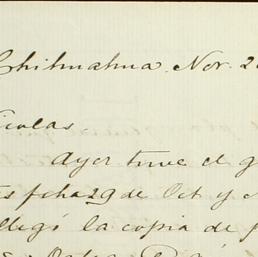 Chihuahua Nov. 2
icolas.
Ayer tuve el g
fcha 29 de Oct y
llegó la copia de